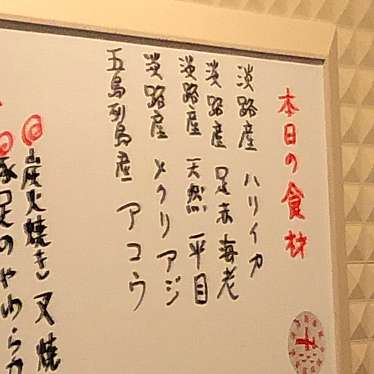 本日の食材
淡路産 ハリイカ
淡路産 足赤海老
淡路産 天然 平目
淡路産 メクリアジ
五島列島産 アコウ
炭火焼き叉焼
豚足のやわらか